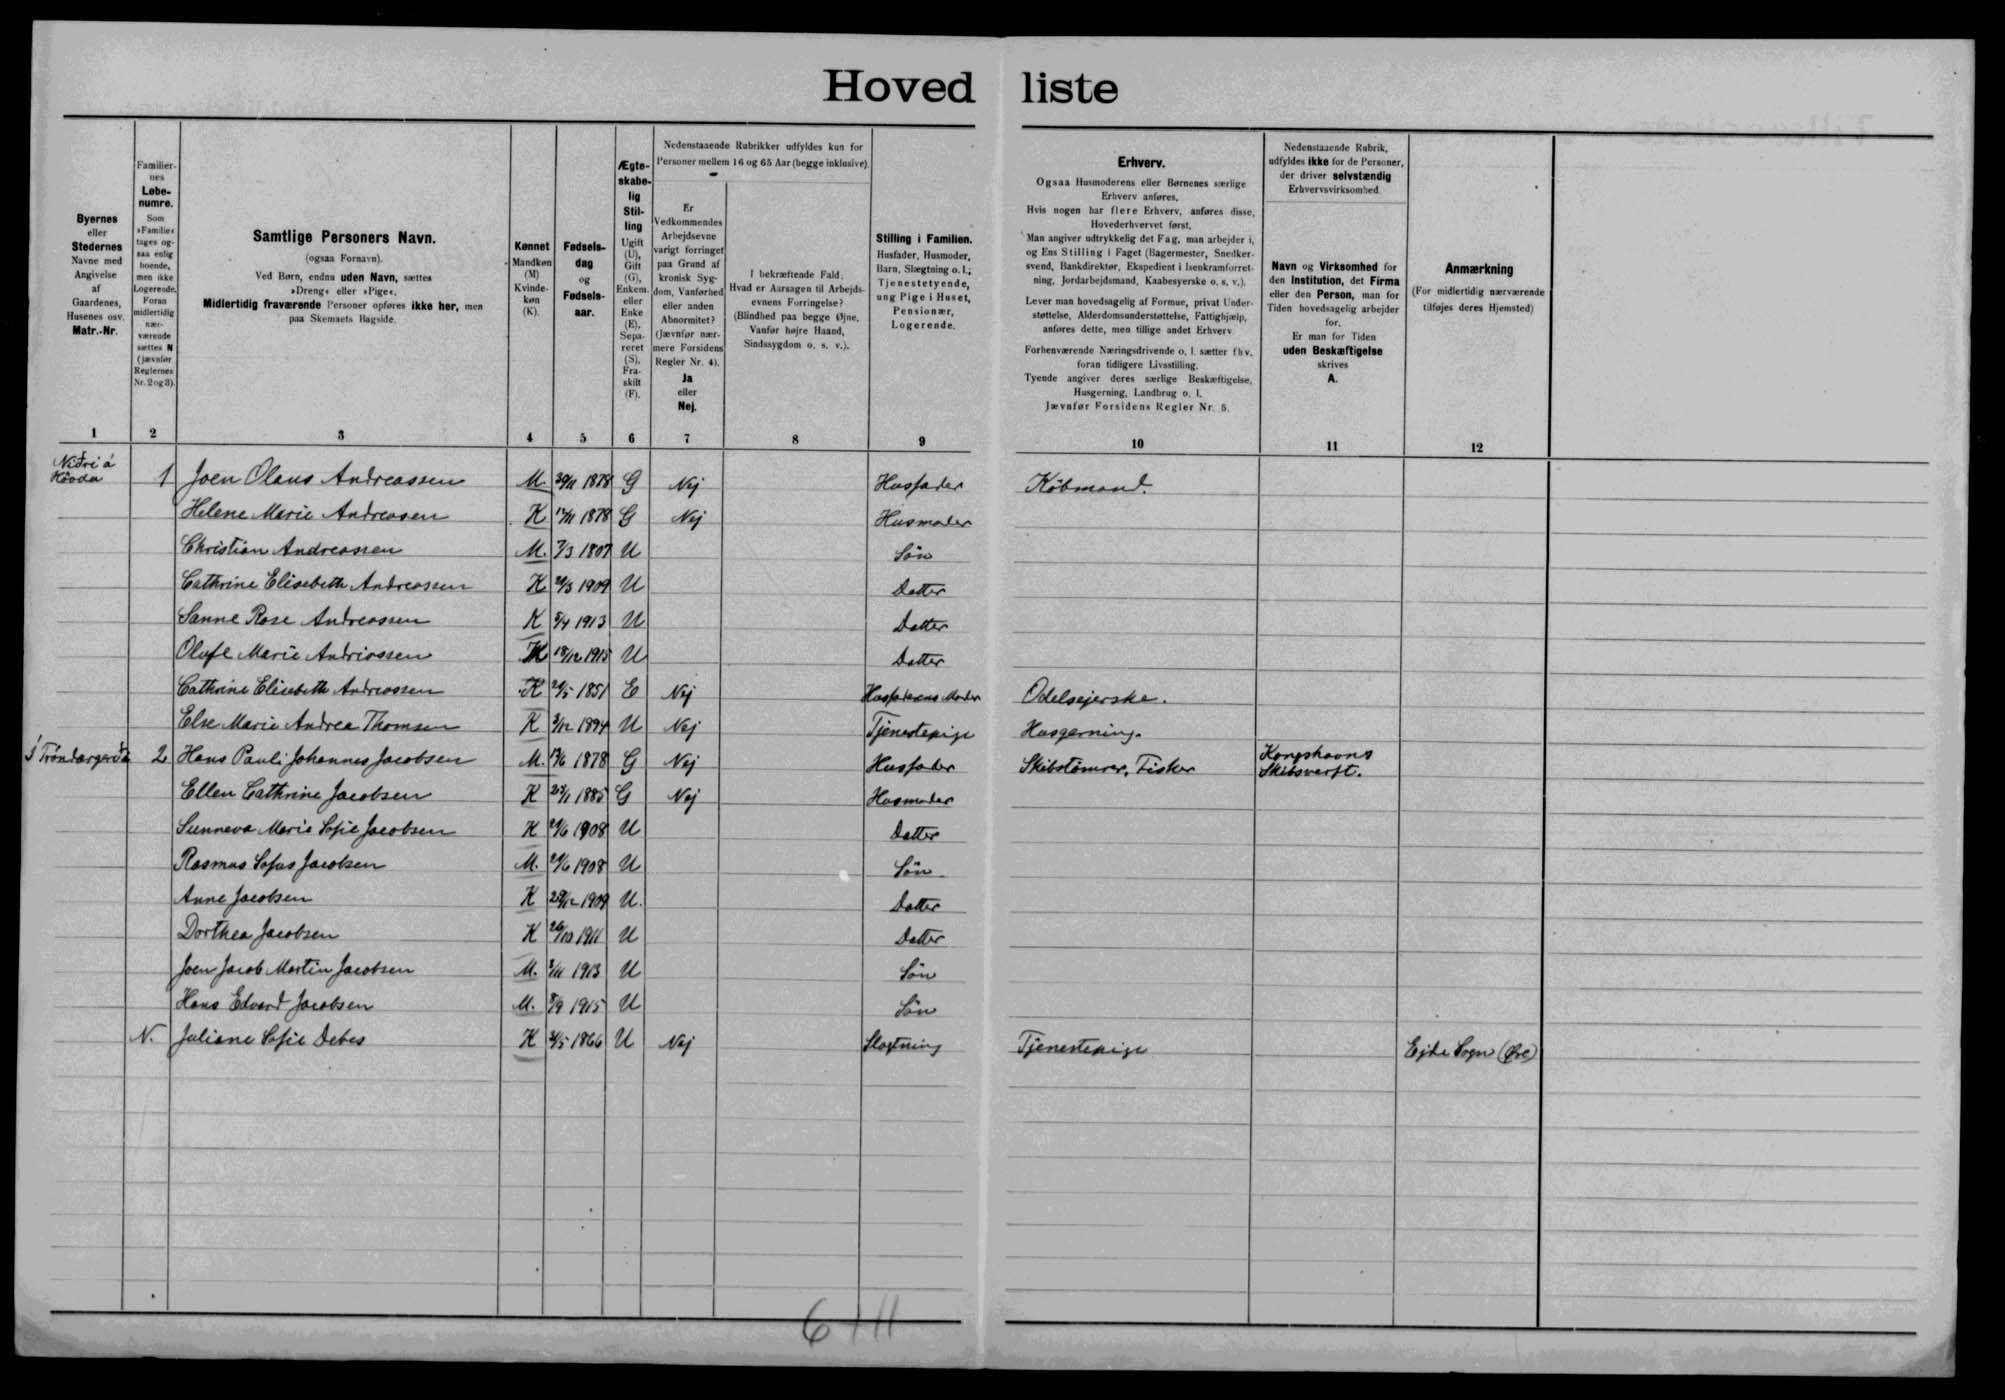 Hovedliste
Byernes
eller
Stedernes
Navne med
Angivelse
af
Gaardenes,
Husenes osv.
Matr.-Nr.
Familier-
nes
Løbe-
numre.
Som
»Familie«
tages og-
saa enlig
boende,
men ikke
Logerende.
Foran
midlertidig
nær-
værende
sættes N
(jævnfør
Reglernes
Nr. 2 og 3).
Samtlige Personers Navn.
(ogsaa Fornavn).
Ved Børn, endnu uden Navn, sættes
»Dreng« eller »Pige«.
Midlertidig fraværende Personer opføres ikke her, men
paa Skemaets Bagside.
Kønnet
Mandkøn
(M)
Kvinde-
køn
(K).
Fødsels-
dag
og
Fødsels-
aar.
Ægte-
skabe-
lig
Stil-
ling
Ugift
(U),
Gift
(G),
Enkem.
eller
Enke
(E),
Sepa-
reret
(S),
Fra-
skilt
(F).
Nedenstaaende Rubrikker udfyldes kun for
Personer mellem 16 og 65 Aar (begge inklusive).
Er
Vedkommendes
Arbejdsevne
varigt forringet
paa Grund af
kronisk Syg-
dom, Vanførhed
eller anden
Abnormitet?
(Jævnfør nær-
mere Forsidens
Regler Nr. 4).
Ja
eller
Nej.
I bekræftende Fald:
Hvad er Aarsagen til Arbejds-
evnens Forringelse?
(Blindhed paa begge Øjne,
Vanfør højre Haand,
Sindssygdom o. s. v.).
Stilling i Familien.
Husfader, Husmoder,
Barn, Slægtning o. l.;
Tjenestetyende,
ung Pige i Huset,
Pensionær,
Logerende.
Erhverv.
Ogsaa Husmoderens eller Børnenes særlige
Erhverv anføres.
Hvis nogen har flere Erhverv, anføres disse,
Hovederhvervet først.
Man angiver udtrykkelig det Fag, man arbejder i,
og Ens Stilling i Faget (Bagermester, Snedker-
svend, Bankdirektør, Ekspedient i Isenkramforret-
ning, Jordarbejdsmand, Kaabesyerske o. s. v.).
Lever man hovedsagelig af Formue, privat Under-
støttelse, Alderdomsunderstøttelse, Fattighjælp,
anføres dette, men tillige andet Erhverv
Forhenværende Næringsdrivende o. l. sætter fhv.
foran tidligere Livsstilling.
Tyende angiver deres særlige Beskæftigelse,
Husgerning, Landbrug o. l.
Jævnfør Forsidens Regler Nr. 5.
Nedenstaaende Rubrik,
udfyldes ikke for de Personer,
der driver selvstændig
Erhvervsvirksomhed.
Navn og Virksomhed for
den Institution, det Firma
eller den Person, man for
Tiden hovedsagelig arbejder
for.
Er man for Tiden
uden Beskæftigelse
skrives
A.
Anmærkning
(For midlertidig nærværende
tilføjes deres Hjemsted)
1 2 3 4 5 6 7 8 9 10 11 12
Niðri á
Hòoda 1 Joen Olaus Andreassen M 1878 G Nej Husfader Köbmand.
Helene Marie Andreasen K 12/11 1878 G Nej Husmoder
Christian Andreassen M. 7/3 1807 U Sön
Cathrine Elisebeth Andreassen K 1909 U Datter
Sanne Rose Andreassen K 5/4 1913 U Datter
Olufe Marie Andriassen K 18/12 1915 U Datter
Cathrine Elisebeth Andreassen K 1851 E Nej Husfaderens Moder Odelsejerske.
Else Marie Andrea Thomsen K 3/12 1894 U Nej Tjenestepige Husgerning.
Í Tróndargerdi 2 Hans Pauli Johannes Jacobsen M. 1878 G Nej Husfader Skibstömrer, Fisker Kongshavns
Skibsverft.
Ellen Cathrine Jacobsen K 1885 G Nej Husmoder
Sunneva Maria Sofie Jacobsen K 1908 U Datter
Rasmus Sofus Jacobsen M. 1908 U Sön
Anne Jacobsen K 29/12 1909 U. Datter
Dorthea Jacobsen K 26/10 1911 U Datter
Joen Jacob Martin Jacobsen M. 1913 U Sön
Hans Edvard Jacobsen M. 8/9 1915 U Sön
N. Juliane Sofie Debes K 1866 U Nej Slægtning Tjenestepige Ejde Sogn
6 / 11